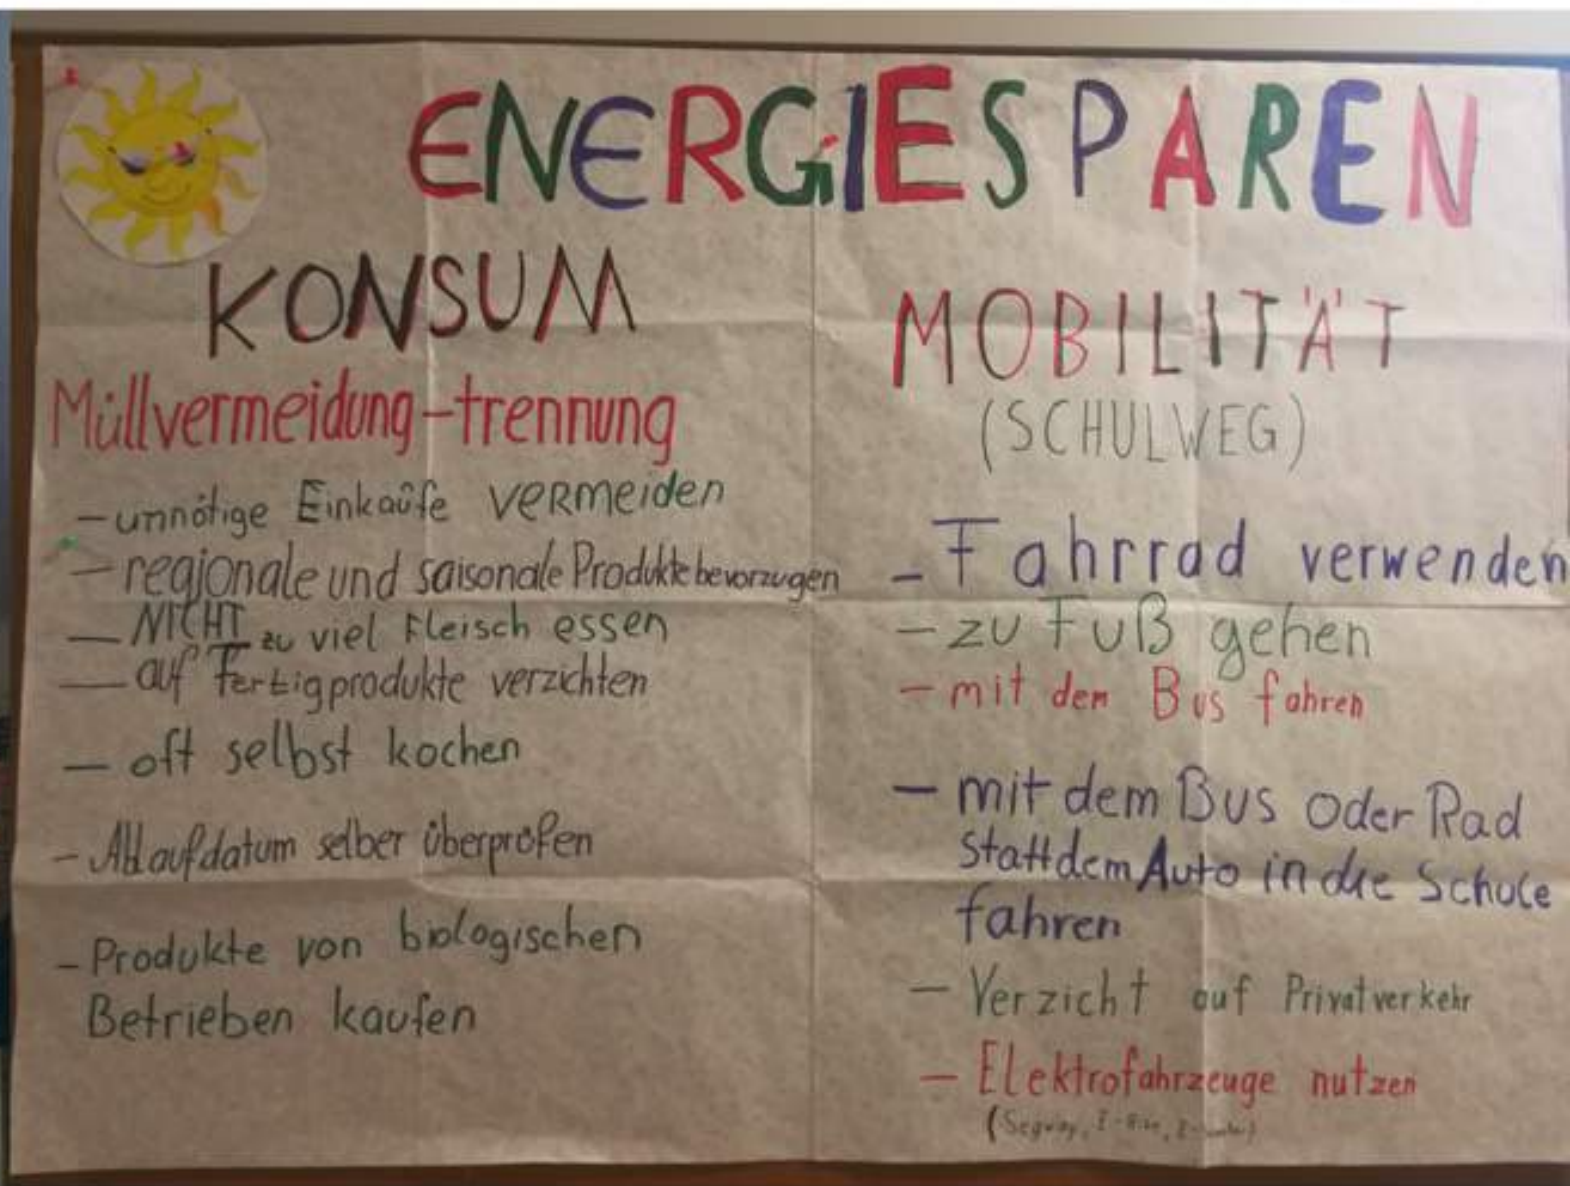 ENERGIESPAREN
KONSUM
Müllvermeidung-trennung
- unnötige Einkäufe vermeiden
- regionale und saisonale Produkte bevorzugen
- NICHT zu viel Fleisch essen
- auf Fertigprodukte verzichten
- oft selbst kochen
- Ablaufdatum selber überprüfen
- Produkte von biologischen
Betrieben kaufen
MOBILITÄT
(SCHULWEG)
- Fahrrad verwenden
- zu Fuß gehen
- mit den Bus fahren
- mit dem Bus oder Rad
statt dem Auto in die Schule
fahren
- Verzicht auf Privatverkehr
- Elektrofahrzeuge nutzen
(Segway, E-Bike,